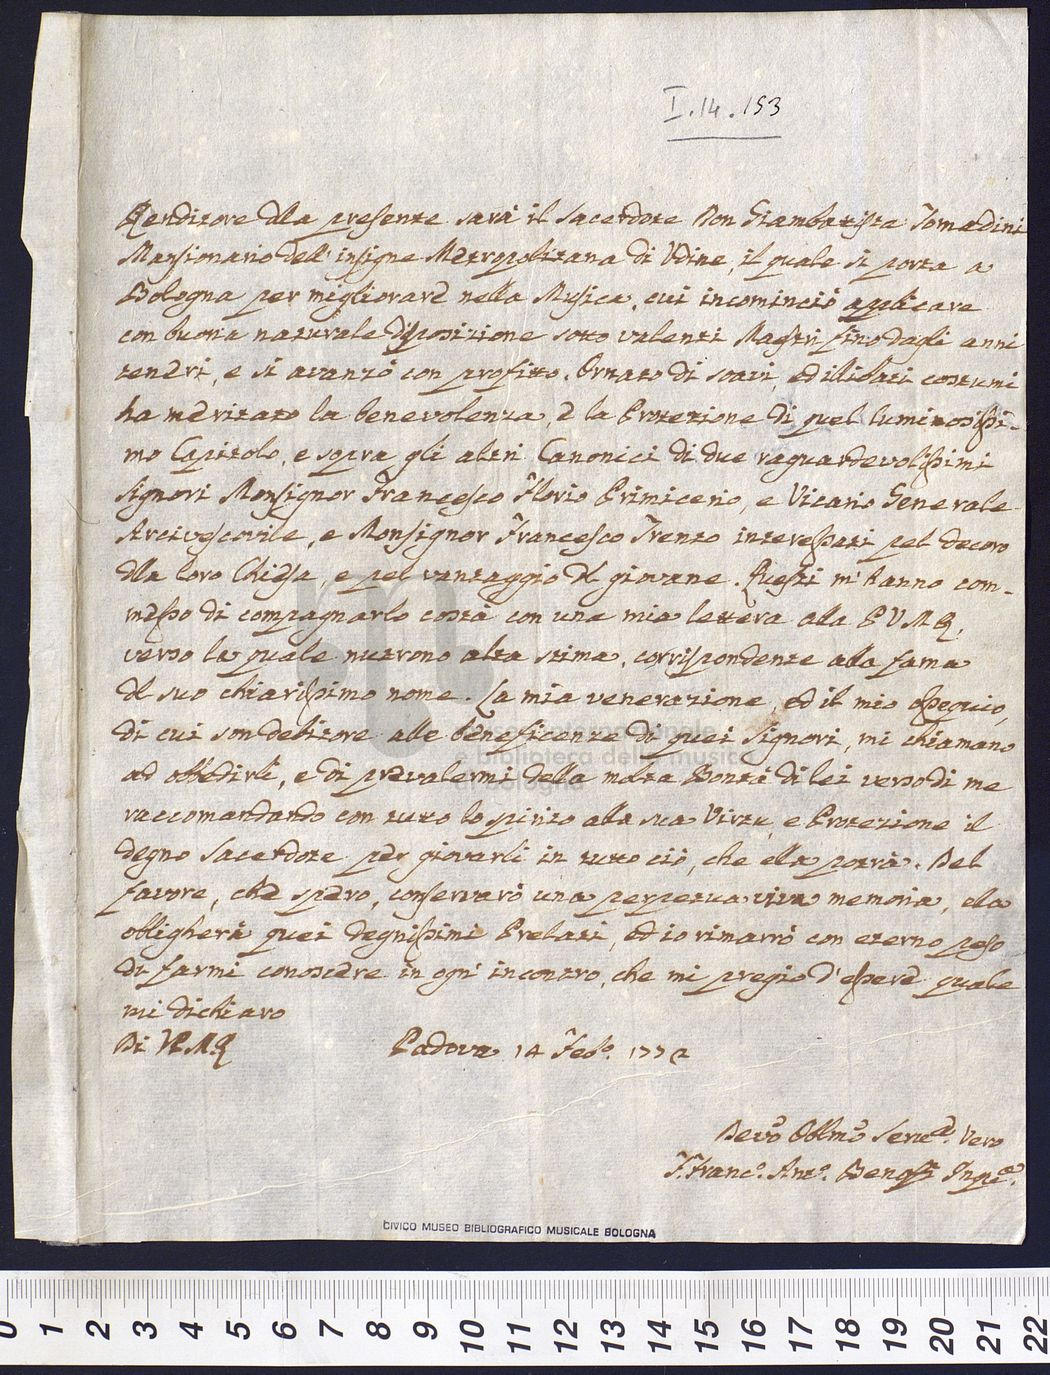 I.14.153
Renditore dlla presente sarà il Sacerdote Don Giambatista Tomadini
Mansionario dell' insigne Metropolitana di Udine, il quale si porta a
Bologna per migliorare nella Musica, cui incominciò applicare
con buona naturale disposizione sotto valenti Mastri fino dagli anni
teneri, e si avanzò con profitto. Ornato di soavi, ed ilibati costumi
ha meritato la benevolenza, e la Protezione di quel luminosissi-
mo Capitolo, e sopra gli altri Canonici di due raguardevolissimi
Signori Monsignor Francesco Florio Primicerio, e Vicario Generale
Arcivescovile, e Monsignor Francesco Trento interessati pel decoro
dlla loro Chiesa, e pel vantaggio dl giovane. Questi m'hanno com-
messo di compagnarlo costà con una mia lettera alla P V M R,
verso la quale nutrono alta stima, corrispondente alla fama
dl suo chiarissimo nome. La mia venerazione, ed il mio ossequio,
di cui son debitore alle beneficenze di quei Signori, mi chiamano
ad obbedirli, e di prevalermi della molta Bontà di lei verso di me
raccomandando con tutto lo spirito alla sua Virtù, e Protezione il
degno Sacerdote per giovarli in tutto ciò, che ella potrà. Del
favore, che spero, conservarò una perpetua viva memoria, ella
obligherà quei degnissimi Prelati, ed io rimarrò con eterno peso
di farmi conoscere in ogn' incontro, che mi pregio d'essere quale
mi dichiaro
Di VPMR Padova 14 Febo. 1772
Devo Obblmo Serve. Vero
F. Franco. Anto.
CIVICO MUSEO BIBLIOGRAFICO MUSICALE BOLOGNA
museo internazionale
e biblioteca della musica
di bologna
0 1 2 3 4 5 6 7 8 9 10 11 12 13 14 15 16 17 18 19 20 21 22